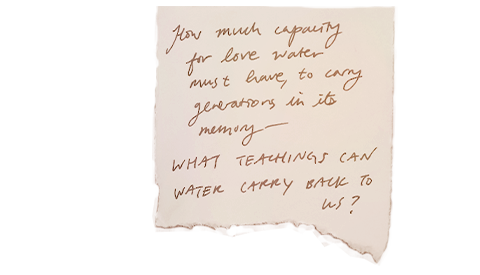 How much capacity
for love water
must have, to carry
generations in its
memory—
WHAT TEACHINGS CAN
WATER CARRY BACK TO
US?